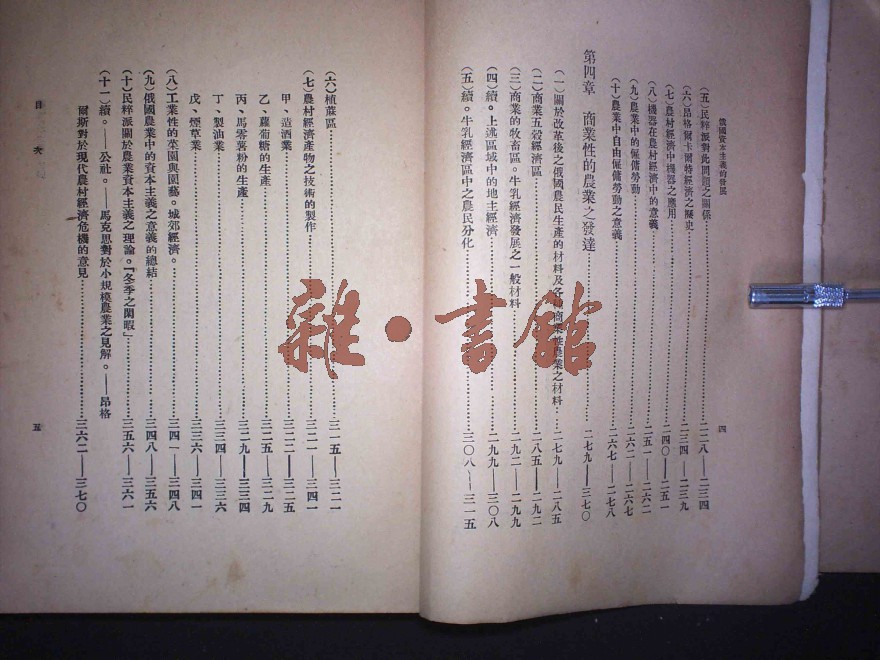 俄國資本主義的發展
（五）民粹派對此問題之關係……二二八——二三四
（六）昂格爾卡爾特經濟之歷史……二三四——二三九
（七）農村經濟中機器之應用……二四〇——二五一
（八）機器在農村經濟中的意義……二五一——二六二
（九）農業中的僱傭勞動……二六二——二六七
（十）農業中自由僱傭勞動之意義……二六七——二七八
第四章　商業性的農業之發達……二七九——三七〇
（一）關於改革後之俄國農民生產的材料及各種商業性農業之材料……二七九——二八五
（二）商業五穀經濟區……二八五——二九二
（三）商業的牧畜區。牛乳經濟發展之一般材料……二九二——二九九
（四）續。上述區域中的地主經濟……二九九——三〇八
（五）續。牛乳經濟區中之農民分化……三〇八——三一五
四
（六）植蔴區……三一五——三二一
（七）農村經濟產物之技術的製作……三二一——三四一
甲、造酒業……三二二——三二五
乙、蘿蔔糖的生產……三二五——三二九
丙、馬零薯粉的生產……三二九——三三四
丁、製油業……三三四——三三六
戊、煙草業……三三六——三四一
（八）工業性的菜園與園藝。城郊經濟。……三四一——三四八
（九）俄國農業中的資本主義之意義的總結……三四八——三五六
（十）民粹派關於農業資本主義之理論。「冬季之閑暇」……三五六——三六一
（十一）續。——公社。——馬克思對於小規模農業之見解。——昂格
爾斯對於現代農村經濟危機的意見……三六二——三七〇
目　次
五
雜·書館